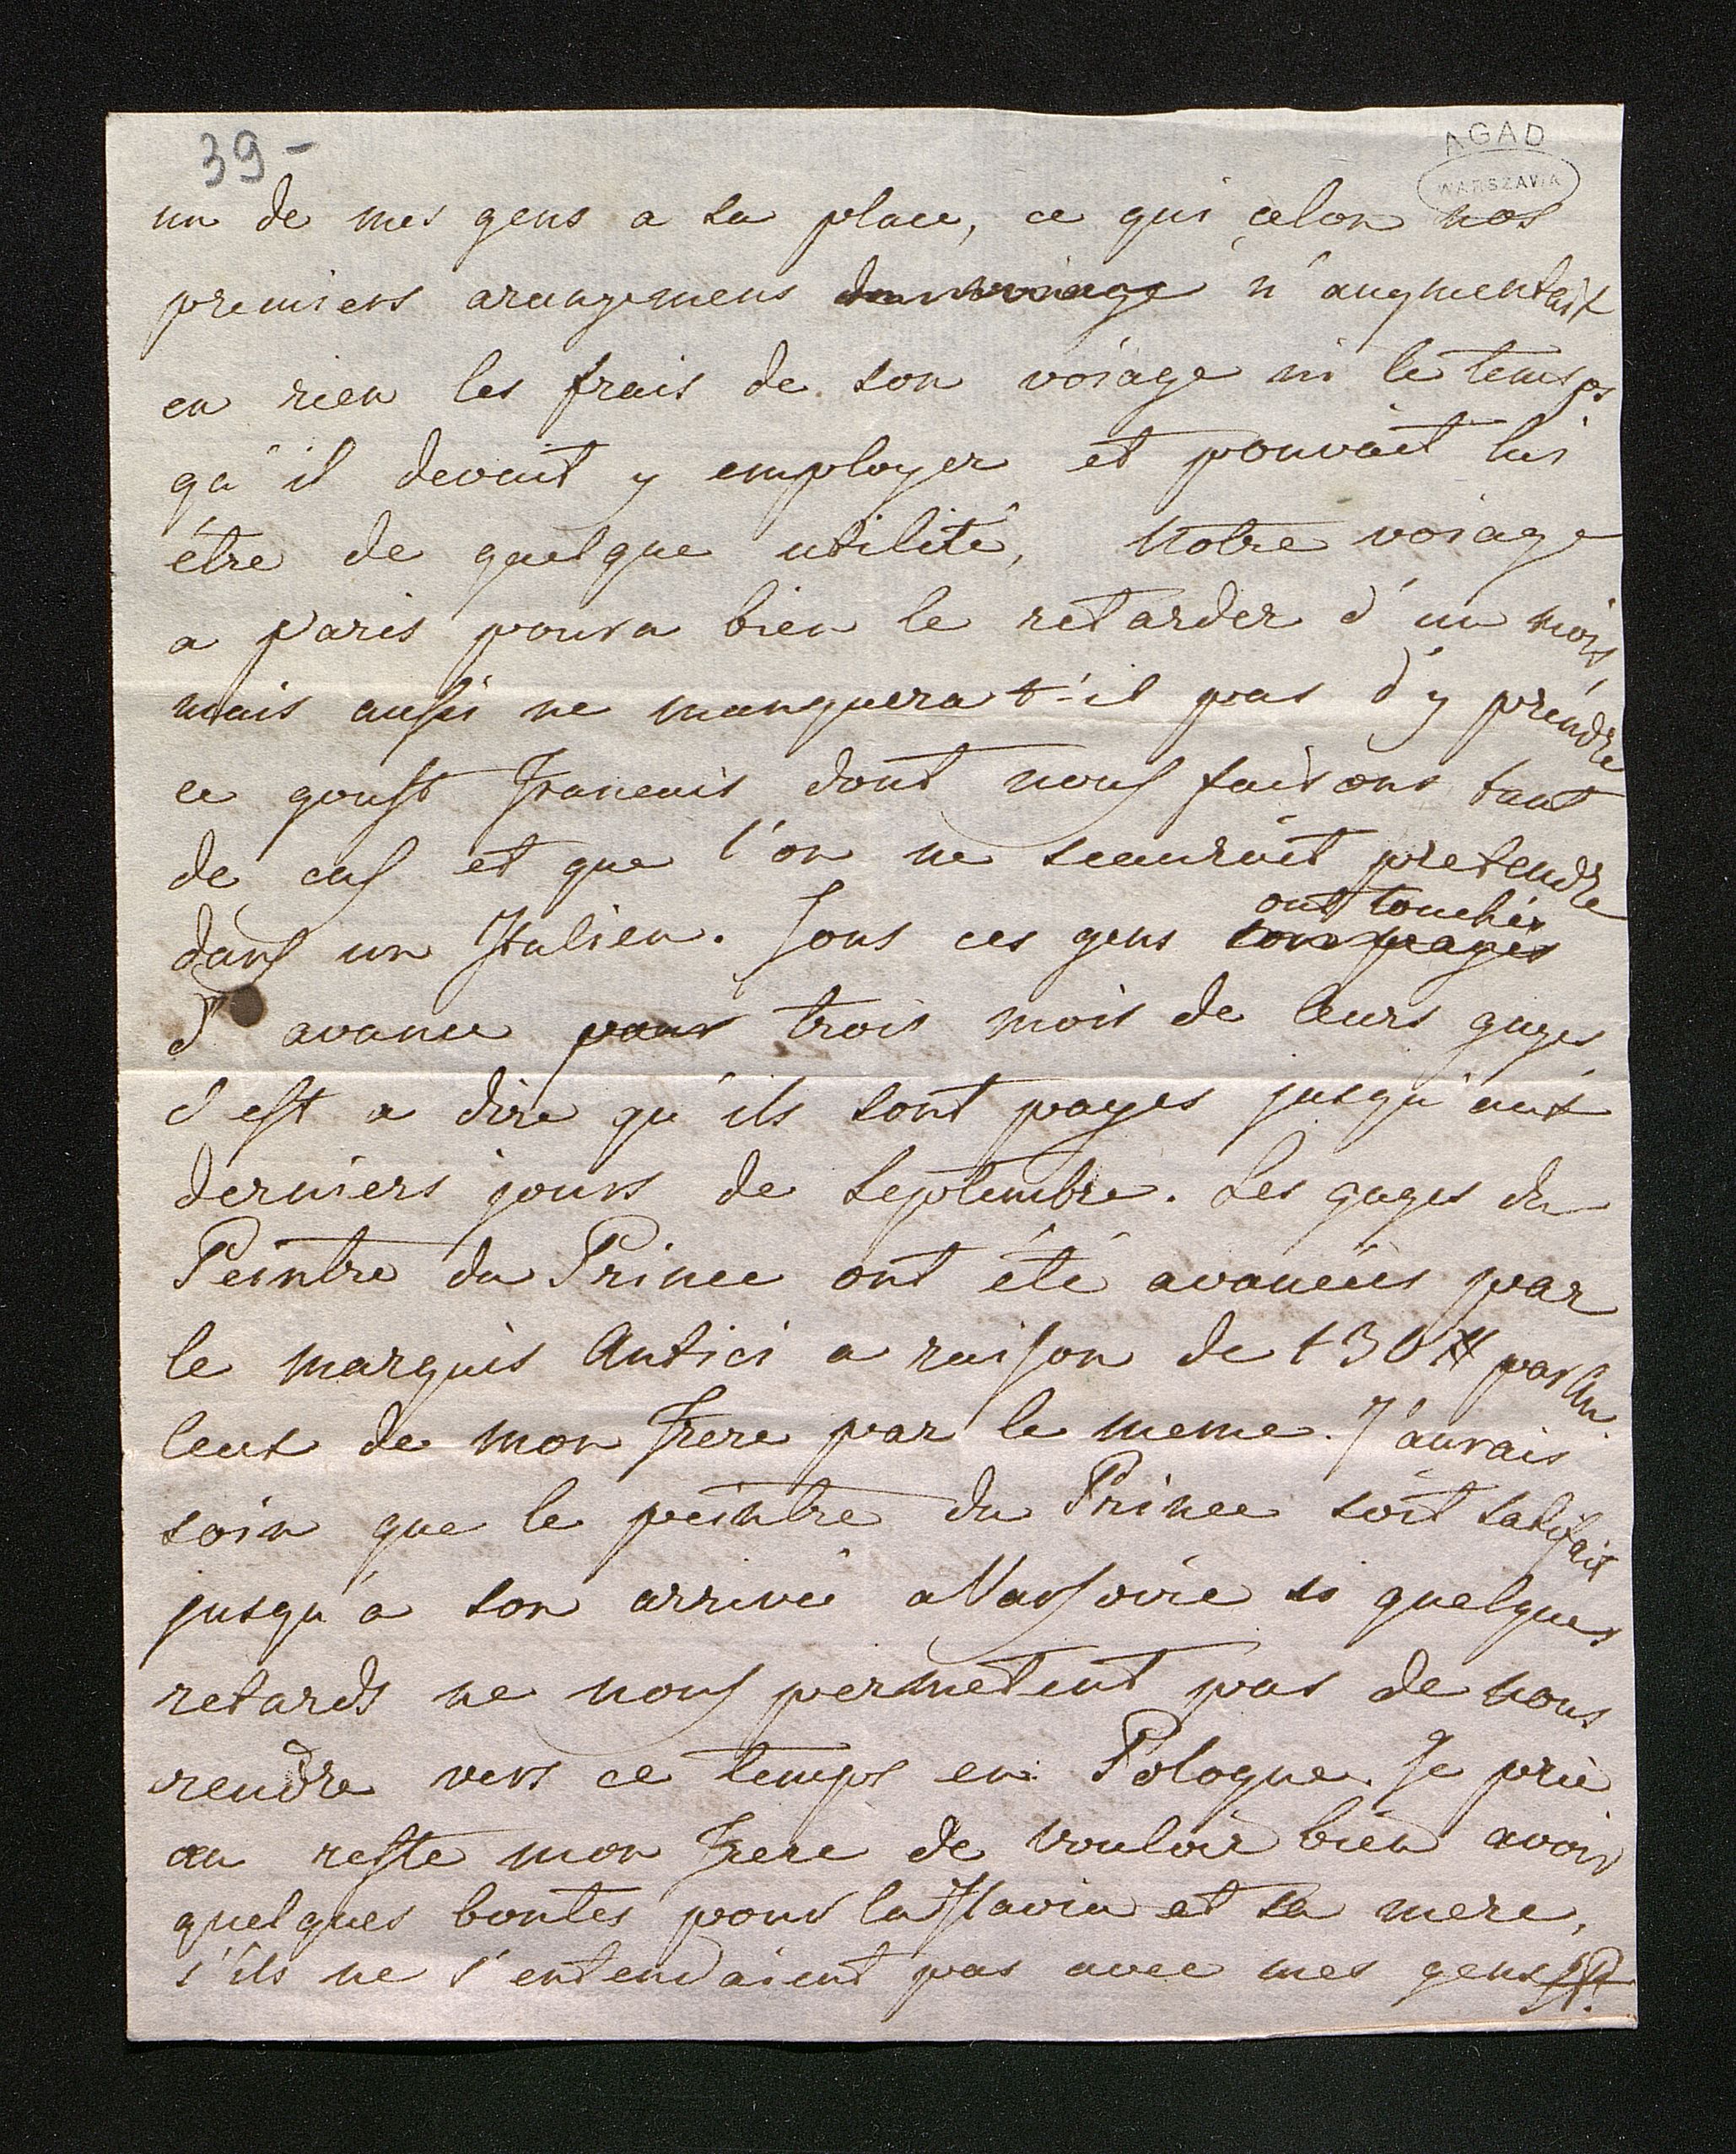 39-
AGAD
WARSZAWA
un de mes gens a sa place, ce qui celon nos
premiers arangemens n'augmentait
en rien les frais de son voiage ni le temps
qu'il devait y employer et pouvait lui
être de quelque utilité, Notre voiage
a Paris poura bien le retarder d'un mois,
mais aussi ne manquera t-il pas d'y prendre
ce goust Francais dont nous faisons tant
de cas et que l'on ne scauroit pretendre
dans un Italien. Tous ces gens ont touchés
d'avance trois mois de leurs gages
c'est a dire qu'ils sont payes jusqu'aux
derniers jours de Septembre. Les gages du
Peintre du Prince ont été avancés par
le marquis Antici a raison de 130 # par an
ceux de mon Frere par le meme. J'aurais
soin que le peintre du Prince soit satisfait
jusqu'a son arrivée a Varsovie si quelques
retards ne nous permetent pas de nous
rendre vers ce temps en Pologne. Je prie
au reste mon Frere de vouloir bien avoir
quelques bontes pour la Flavia et sa mere,
s'ils ne s'entendaient pas avec mes gens